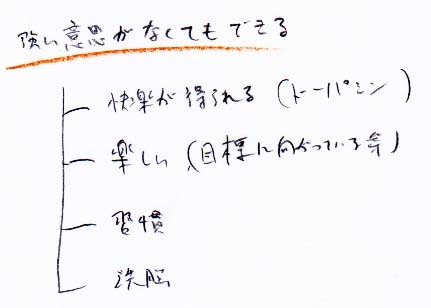 強い意思がなくてもできる
快楽が得られる (ドーパミン)
楽しい (目標に向かっている等)
習慣
洗脳